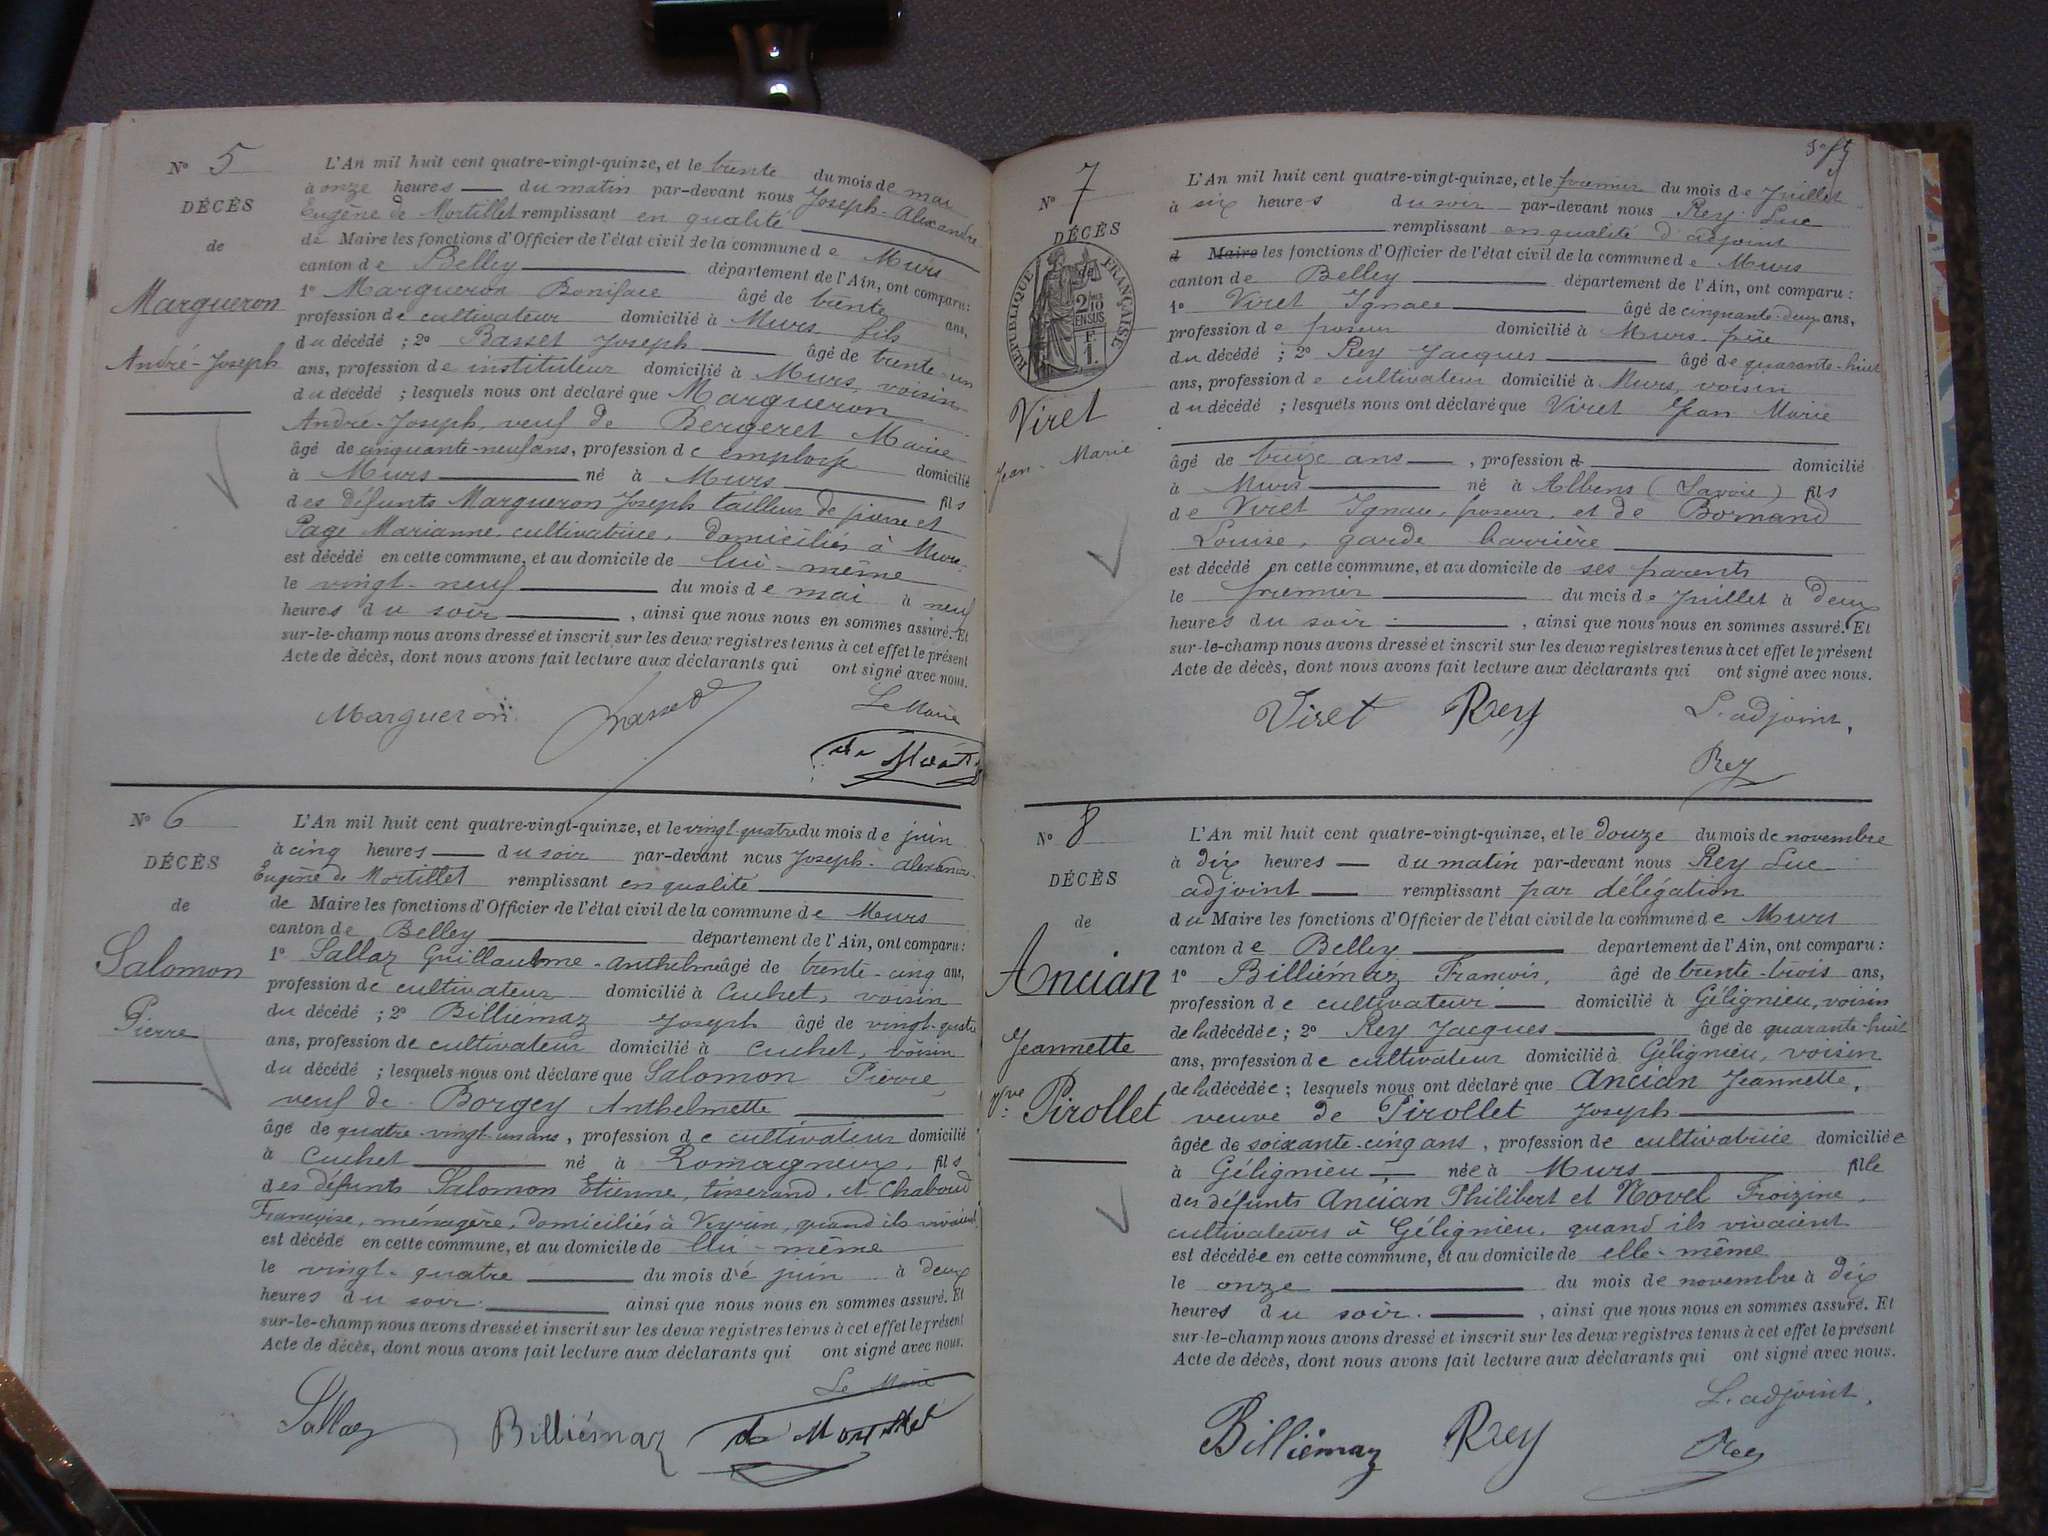 N° 5
DÉCÈS
de
Margueron
André-Joseph
L'An mil huit cent quatre-vingt-quinze, et le trente du mois de mai
à onze heures du matin par-devant nous Joseph-Alexandre
Eugène de Mortillet remplissant en qualité
de Maire les fonctions d'Officier de l'état civil de la commune de Murs
canton de Belley département de l'Ain, ont comparu :
1° Margueron Boniface âgé de trente ans,
profession de cultivateur domicilié à Murs fils
du décédé ; 2° Basset Joseph âgé de trente-un
ans, profession de instituteur domicilié à Murs, voisin
du décédé ; lesquels nous ont déclaré que Margueron
André-Joseph, veuf de Bergeret Marie
âgé de cinquante-neuf ans, profession de employé domicilié
à Murs né à Murs fils
des défunts Margueron Joseph tailleur de pierre et
Page Marianne, cultivatrice, domiciliés à Murs
est décédé en cette commune, et au domicile de lui-même
le vingt-neuf du mois de mai à neuf
heures du soir, ainsi que nous nous en sommes assuré. Et
sur-le-champ nous avons dressé et inscrit sur les deux registres tenus à cet effet le présent
Acte de décès, dont nous avons fait lecture aux déclarants qui ont signé avec nous.
Margueron Basset Le Maire
N° 6
DÉCÈS
de
Salomon
Pierre
L'An mil huit cent quatre-vingt-quinze, et le vingt-quatre du mois de juin
à cinq heures du soir par-devant nous Joseph-Alexandre
Eugène de Mortillet remplissant en qualité
de Maire les fonctions d'Officier de l'état civil de la commune de Murs
canton de Belley département de l'Ain, ont comparu :
1° Sallaz Guillaulme-Anthelme âgé de trente-cinq ans,
profession de cultivateur domicilié à Cuchet, voisin
du décédé ; 2° Billiemaz Joseph âgé de vingt-quatre
ans, profession de cultivateur domicilié à Cuchet, voisin
du décédé ; lesquels nous ont déclaré que Salomon Pierre
veuf de Borgey Anthelmette
âgé de quatre-vingt-un ans, profession de cultivateur domicilié
à Cuchet né à Romagneux, fils
des défunts Salomon Etienne, tisserand, et Chaboud
Françoise, ménagère, domiciliés à Veyrin, quand ils vivaient
est décédé en cette commune, et au domicile de lui-même
le vingt-quatre du mois de juin à deux
heures du soir. ainsi que nous nous en sommes assuré. Et
sur-le-champ nous avons dressé et inscrit sur les deux registres tenus à cet effet le présent
Acte de décès, dont nous avons fait lecture aux déclarants qui ont signé avec nous.
Le Maire
Sallaz Billiémaz de Mortillet
N° 7
DÉCÈS
de
RÉPUBLIQUE FRANÇAISE
2/10 EN SUS
F. 1.
Viret
Jean-Marie
L'An mil huit cent quatre-vingt-quinze, et le premier du mois de Juillet
à six heures du soir par-devant nous Rey Luc
remplissant en qualité d'adjoint
d Maire les fonctions d'Officier de l'état civil de la commune de Murs
canton de Belley département de l'Ain, ont comparu :
1° Viret Ignace âgé de cinquante-deux ans,
profession de poseur domicilié à Murs, père
du décédé ; 2° Rey Jacques âgé de quarante-huit
ans, profession de cultivateur domicilié à Murs, voisin
du décédé ; lesquels nous ont déclaré que Viret Jean Marie
âgé de treize ans, profession d domicilié
à Murs né à Albens (Savoie) fils
de Viret Ignace, poseur, et de Bornand
Louise, garde barrière
est décédé en cette commune, et au domicile de ses parents
le premier du mois de Juillet à deux
heures du soir. , ainsi que nous nous en sommes assuré. Et
sur-le-champ nous avons dressé et inscrit sur les deux registres tenus à cet effet le présent
Acte de décès, dont nous avons fait lecture aux déclarants qui ont signé avec nous.
Viret Rey L'adjoint,
Rey
N° 8
DÉCÈS
de
Ancian
Jeannette
Vve Pirollet
L'An mil huit cent quatre-vingt-quinze, et le douze du mois de novembre
à dix heures du matin par-devant nous Rey Luc
adjoint remplissant par délégation
du Maire les fonctions d'Officier de l'état civil de la commune de Murs
canton de Belley département de l'Ain, ont comparu :
1° Billiémaz François, âgé de trente-trois ans,
profession de cultivateur domicilié à Gélignieu, voisin
de la décédée ; 2° Rey Jacques âgé de quarante-huit
ans, profession de cultivateur domicilié à Gélignieu, voisin
de la décédée ; lesquels nous ont déclaré que Ancian Jeannette,
veuve de Pirollet Joseph
âgée de soixante-cinq ans, profession de cultivatrice domiciliée
à Gélignieu née à Murs fille
des défunts Ancian Philibert et Novel Froizine,
cultivateurs à Gélignieu, quand ils vivaient
est décédée en cette commune, et au domicile de elle-même
le onze du mois de novembre à dix
heures du soir. , ainsi que nous nous en sommes assuré. Et
sur-le-champ nous avons dressé et inscrit sur les deux registres tenus à cet effet le présent
Acte de décès, dont nous avons fait lecture aux déclarants qui ont signé avec nous.
L'adjoint,
Billiémaz Rey Rey